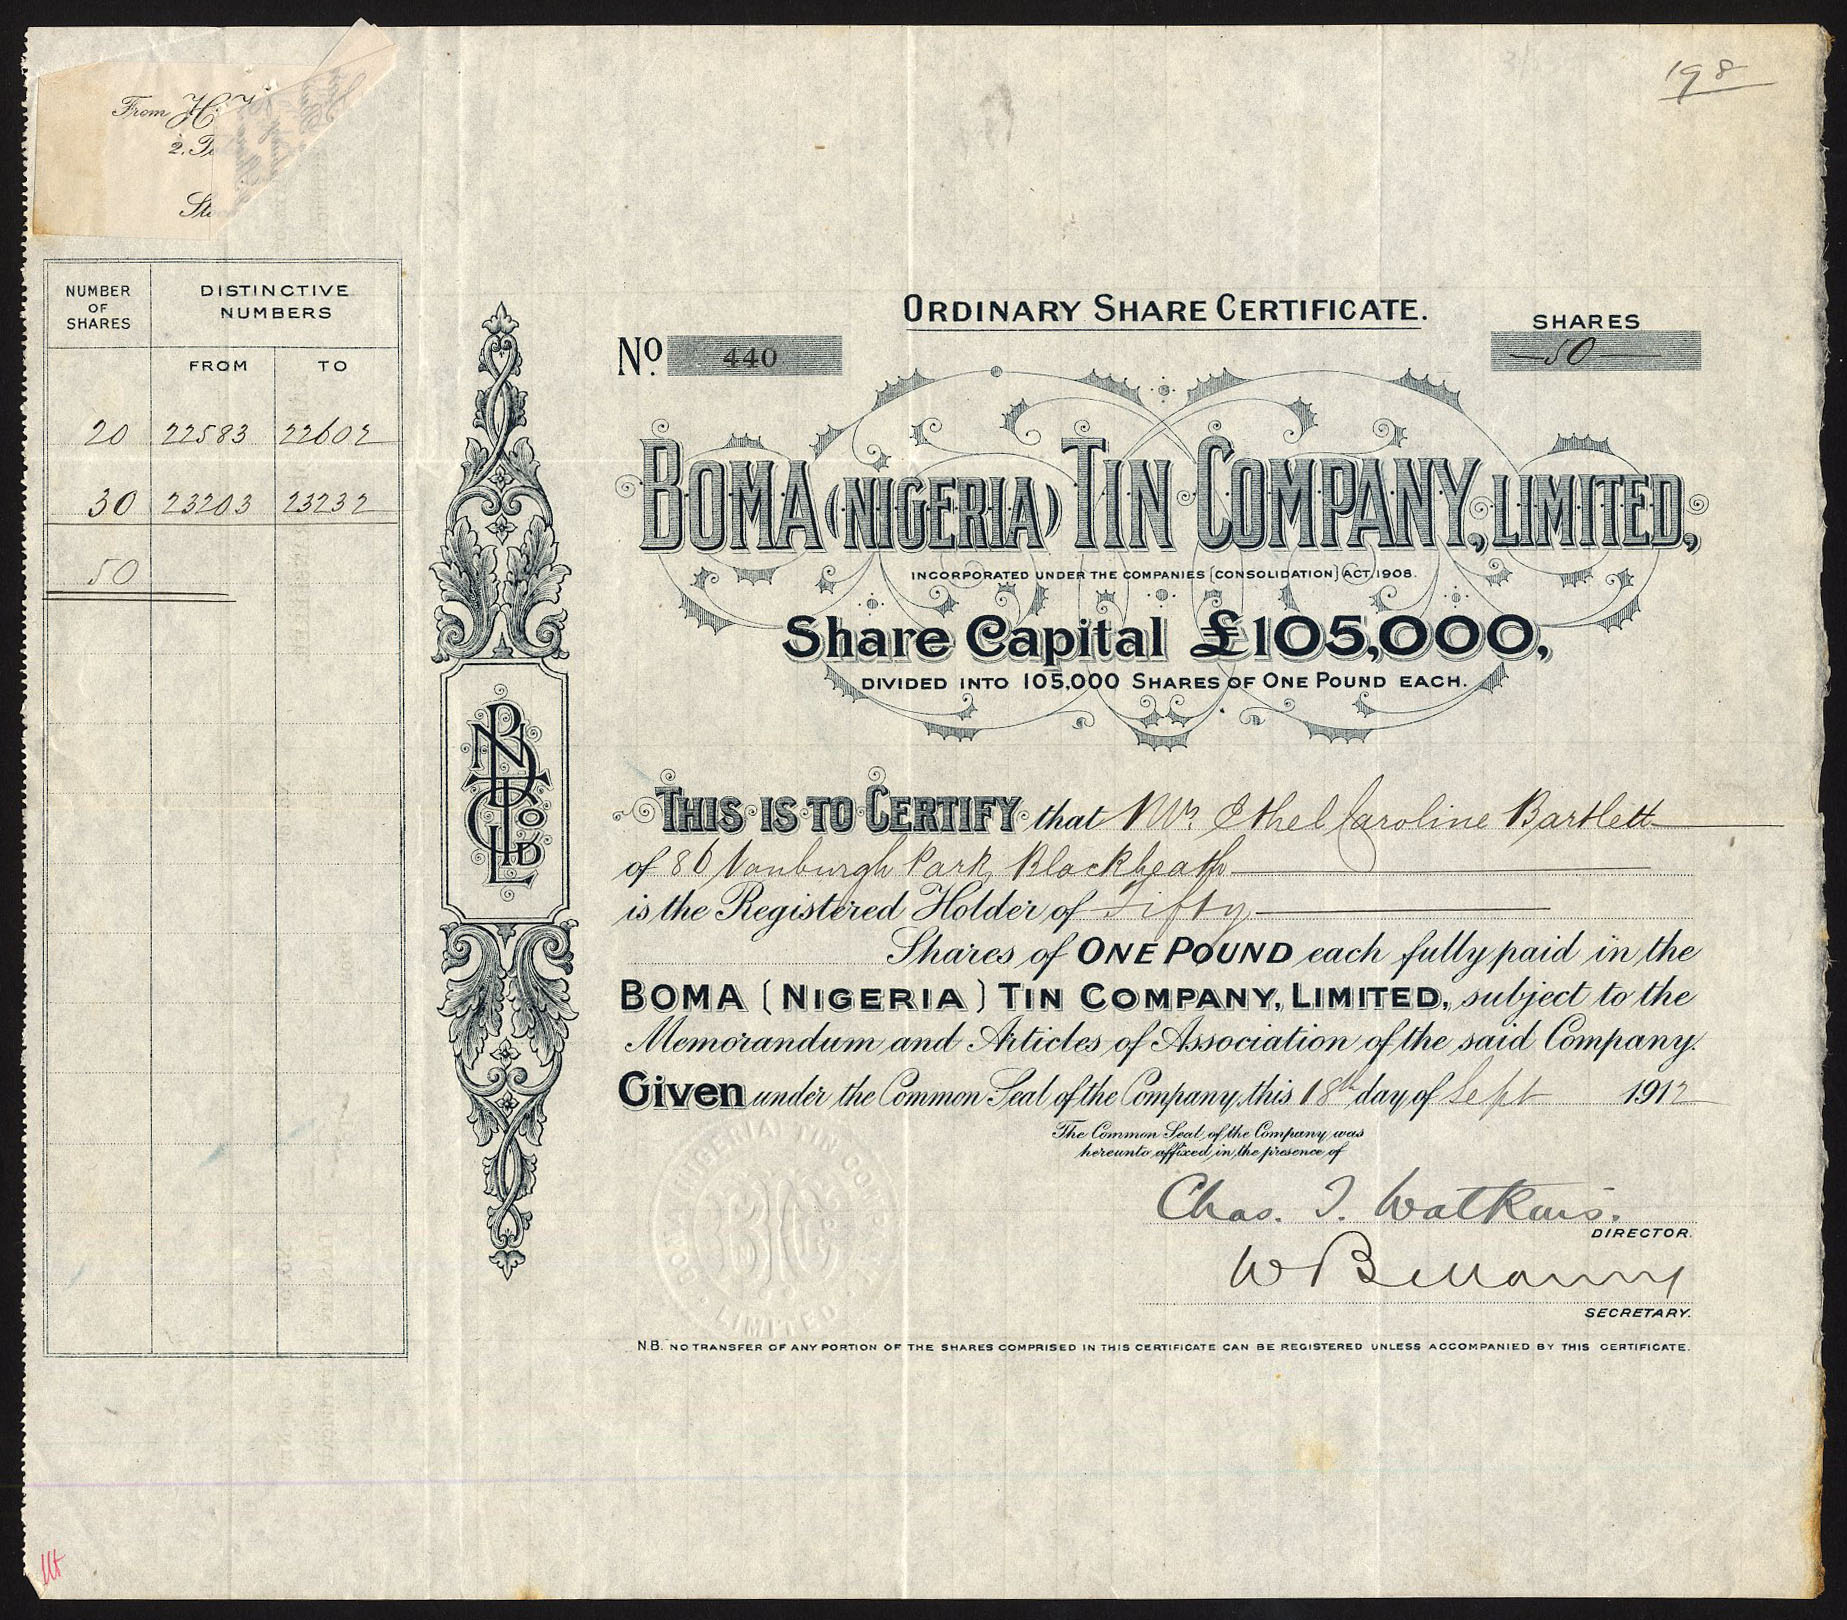 198
From H.
2.
NUMBER OF SHARES DISTINCTIVE NUMBERS
FROM TO
20 22583 22602
30 23203 23232
50
ORDINARY SHARE CERTIFICATE.
No. 440
SHARES
50
BOMA (NIGERIA) TIN COMPANY, LIMITED,
INCORPORATED UNDER THE COMPANIES (CONSOLIDATION) ACT, 1908.
Share Capital £105,000,
DIVIDED INTO 105,000 SHARES OF ONE POUND EACH.
THIS IS TO CERTIFY that Mrs Ethel Caroline Bartlett
of 86 Vanburgh Park, Blackheath
is the Registered Holder of Fifty
Shares of ONE POUND each fully paid in the
BOMA (NIGERIA) TIN COMPANY, LIMITED, subject to the
Memorandum and Articles of Association of the said Company.
Given under the Common Seal of the Company, this 18th day of Sept 1912
The Common Seal of the Company was
hereunto affixed in the presence of
Chas. T. Watkins.
DIRECTOR.
W
SECRETARY.
BOMA (NIGERIA) TIN COMPANY LIMITED
N.B. NO TRANSFER OF ANY PORTION OF THE SHARES COMPRISED IN THIS CERTIFICATE CAN BE REGISTERED UNLESS ACCOMPANIED BY THIS CERTIFICATE.